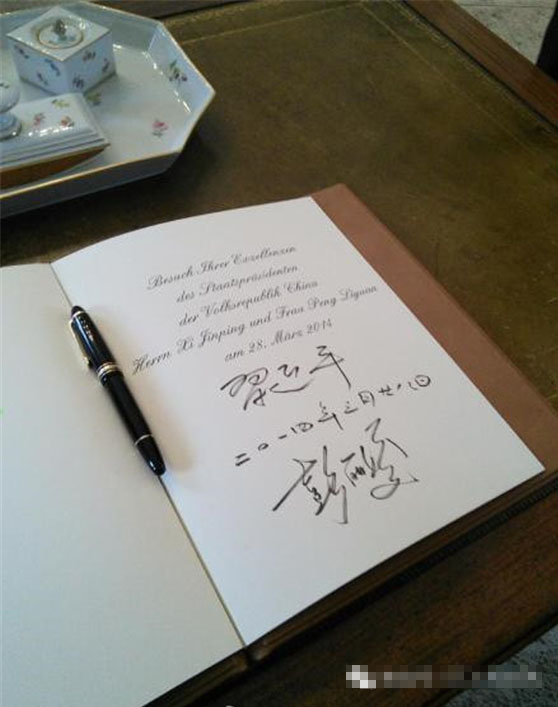 Besuch Ihrer Exzellenzen
des Staatspräsidenten
der Volksrepublik China
Herrn Xi Jinping und Frau Peng Liyuan
am 28. März 2014
习近平
二〇一四年三月廿八日
彭丽媛